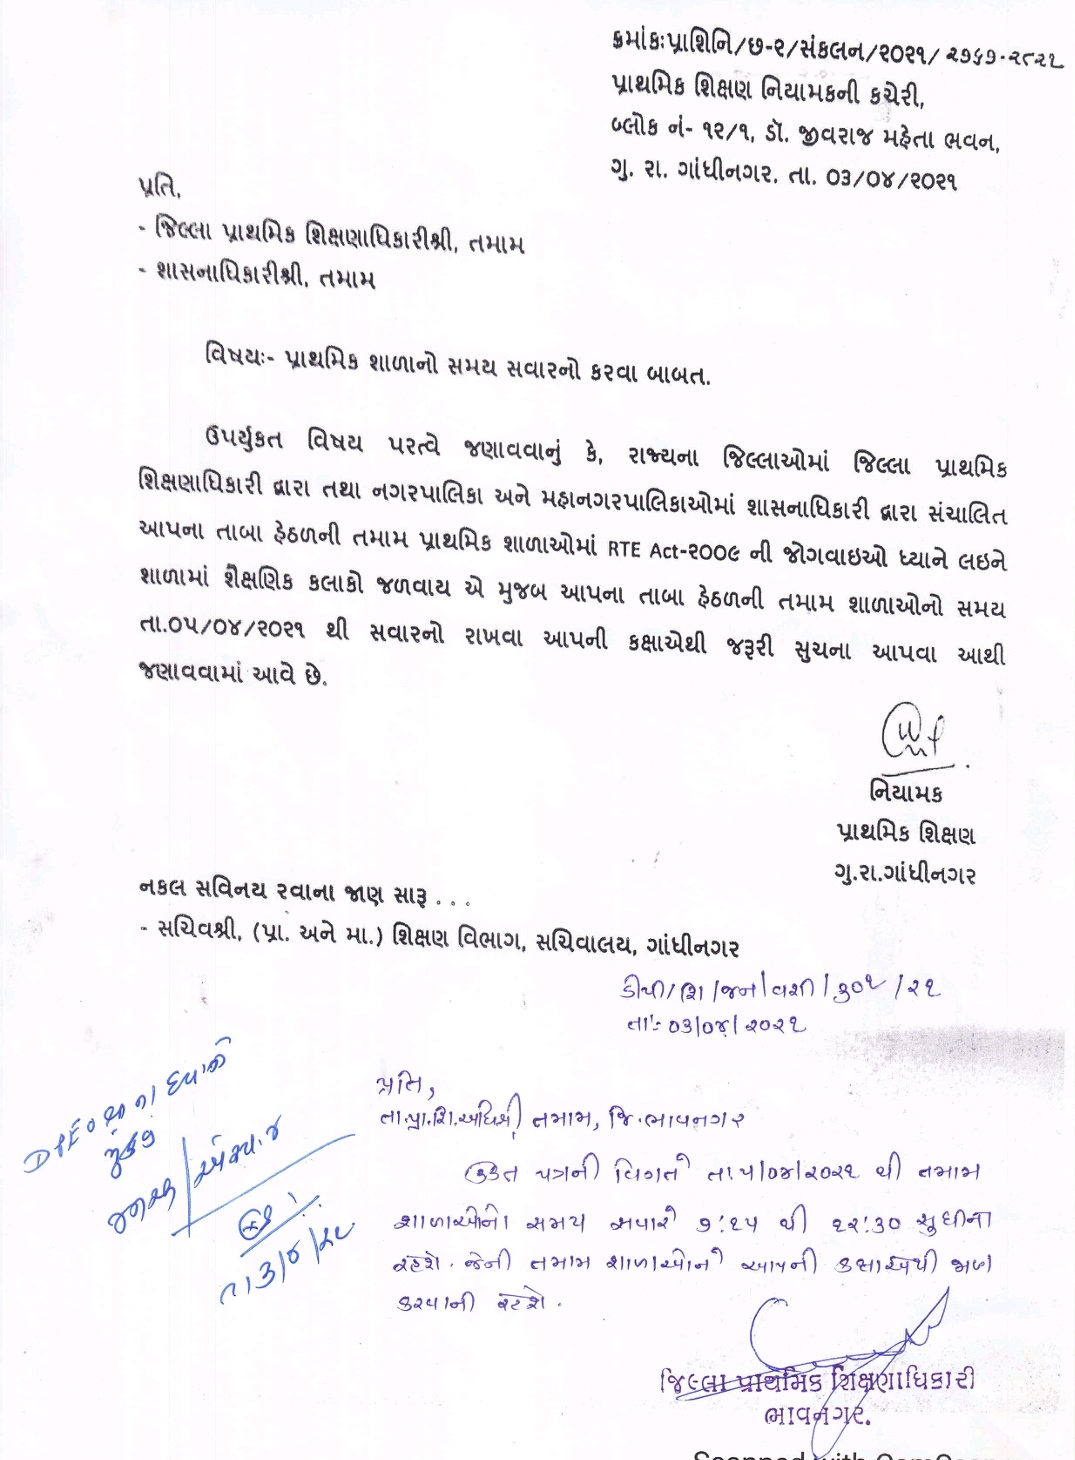 ક્રમાંકઃપ્રાશિનિ/છ-૨/સંકલન/૨૦૨૧/ ૨૭૬૭-૨૮૨૨
પ્રાથમિક શિક્ષણ નિયામકની કચેરી,
બ્લોક નં- ૧૨/૧, ડૉ. જીવરાજ મહેતા ભવન,
ગુ. રા. ગાંધીનગર. તા. ૦૩/૦૪/૨૦૨૧
પ્રતિ,
- જિલ્લા પ્રાથમિક શિક્ષણાધિકારીશ્રી, તમામ
- શાસનાધિકારીશ્રી, તમામ
વિષયઃ- પ્રાથમિક શાળાનો સમય સવારનો કરવા બાબત.
ઉપર્યુકત વિષય પરત્વે જણાવવાનું કે, રાજ્યના જિલ્લાઓમાં જિલ્લા પ્રાથમિક
શિક્ષણાધિકારી દ્વારા તથા નગરપાલિકા અને મહાનગરપાલિકાઓમાં શાસનાધિકારી દ્વારા સંચાલિત
આપના તાબા હેઠળની તમામ પ્રાથમિક શાળાઓમાં RTE Act-૨૦૦૯ ની જોગવાઇઓ ધ્યાને લઇને
શાળામાં શૈક્ષણિક કલાકો જળવાય એ મુજબ આપના તાબા હેઠળની તમામ શાળાઓનો સમય
તા.૦૫/૦૪/૨૦૨૧ થી સવારનો રાખવા આપની કક્ષાએથી જરૂરી સુચના આપવા આથી
જણાવવામાં આવે છે.
નિયામક
પ્રાથમિક શિક્ષણ
ગુ.રા.ગાંધીનગર
નકલ સવિનય રવાના જાણ સારૂ . . .
- સચિવશ્રી, (પ્રા. અને મા.) શિક્ષણ વિભાગ, સચિવાલય, ગાંધીનગર
ડીપી/શિ/જન/વશી/૩૦૧/૨૧
તા: ૦૩/૦૪/૨૦૨૧
પ્રતિ,
તા.પ્રા.શિ.અધિશ્રી, તમામ, જિ.ભાવનગર
ઉકત પત્રની વિગતે તા.૫/૦૪/૨૦૨૧ થી તમામ
શાળાઓનો સમય સવારે ૭:૨૫ થી ૧૨:૩૦ સુધીના
રહેશે. જેની તમામ શાળાઓને આપની કક્ષાએથી જાણ
કરવાની રહેશે.
જિલ્લા પ્રાથમિક શિક્ષણાધિકારી
ભાવનગર.